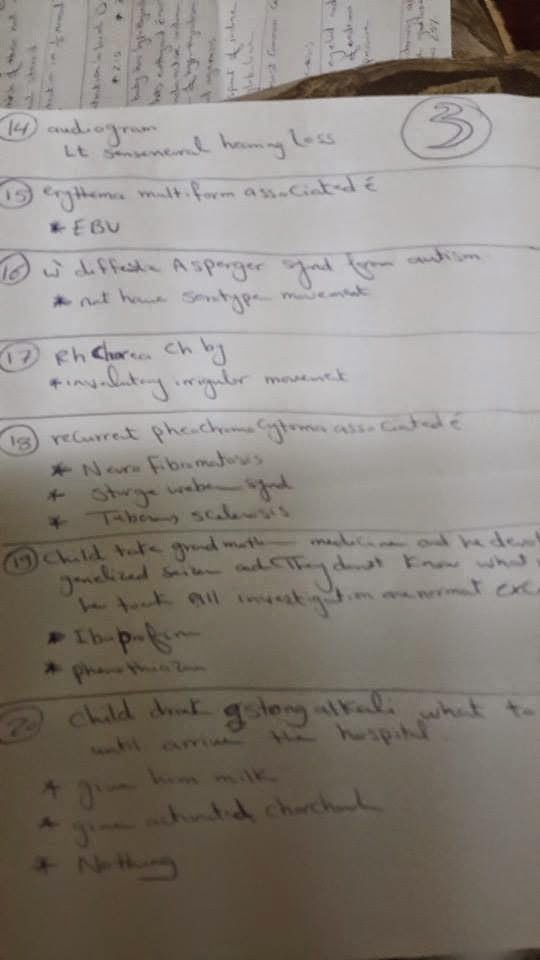 3
14 audiogram
Lt senseneural hearing loss
15 erythema multiform associated é
* EBV
16 w differe Asperger synd from autism
* not have serotype movement
17 Rh Chorea Ch by
* involuntary irrigular movement
18 recurrent pheochromocytoma associated é
* Neurofibromatosis
* Sturge weber synd
* Tuberous sclerosis
19 Child take grandmother medicine and he devel
genelized seizer and They don't know what
he took All investigation are normal exc
* Ibuprofen
* phenothiazan
20 child drink strong alkali what to
until arrive the hospital
* give him milk
* give activated charchoal
* Nothing